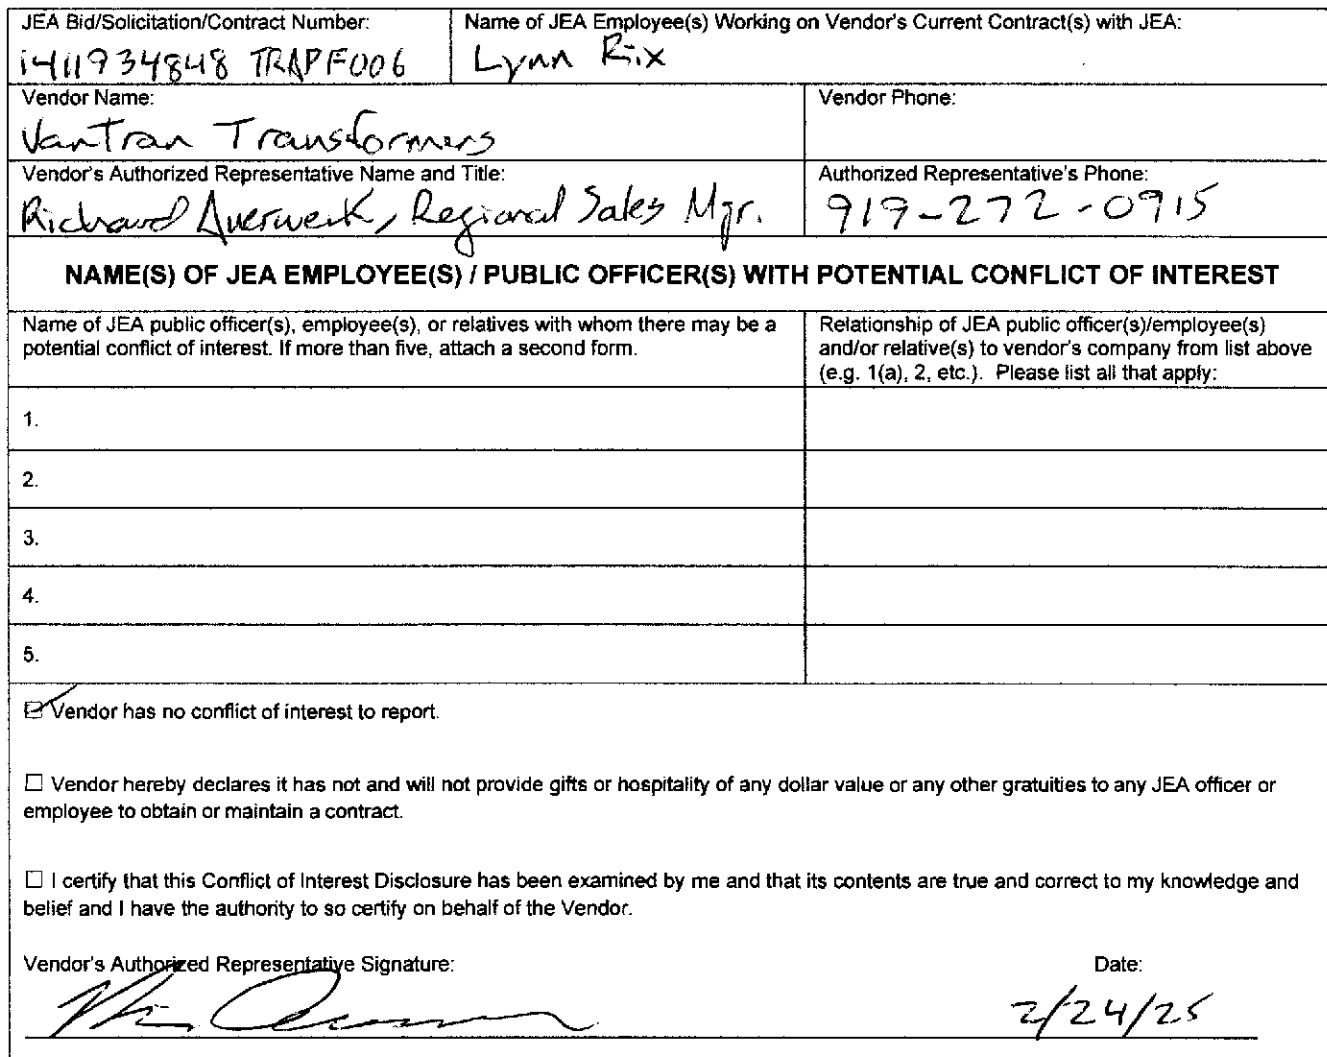 JEA Bid/Solicitation/Contract Number:
1411934848 TRAPF006
Name of JEA Employee(s) Working on Vendor's Current Contract(s) with JEA:
Lynn Rix
Vendor Name:
VanTran Transformers
Vendor Phone:
Vendor's Authorized Representative Name and Title:
Richard Averwerk, Regional Sales Mgr.
Authorized Representative's Phone:
919-272-0915
NAME(S) OF JEA EMPLOYEE(S) / PUBLIC OFFICER(S) WITH POTENTIAL CONFLICT OF INTEREST
Name of JEA public officer(s), employee(s), or relatives with whom there may be a
potential conflict of interest. If more than five, attach a second form.
Relationship of JEA public officer(s)/employee(s)
and/or relative(s) to vendor's company from list above
(e.g. 1(a), 2, etc.). Please list all that apply:
1.
2.
3.
4.
5.
Vendor has no conflict of interest to report.
☐ Vendor hereby declares it has not and will not provide gifts or hospitality of any dollar value or any other gratuities to any JEA officer or
employee to obtain or maintain a contract.
☐ I certify that this Conflict of Interest Disclosure has been examined by me and that its contents are true and correct to my knowledge and
belief and I have the authority to so certify on behalf of the Vendor.
Vendor's Authorized Representative Signature:
Date:
2/24/25